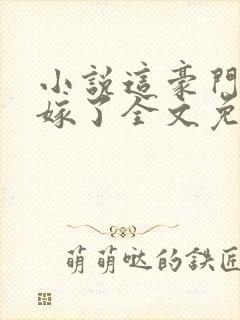 小說這豪門
嫁了全文免
萌萌哒的鉄匠